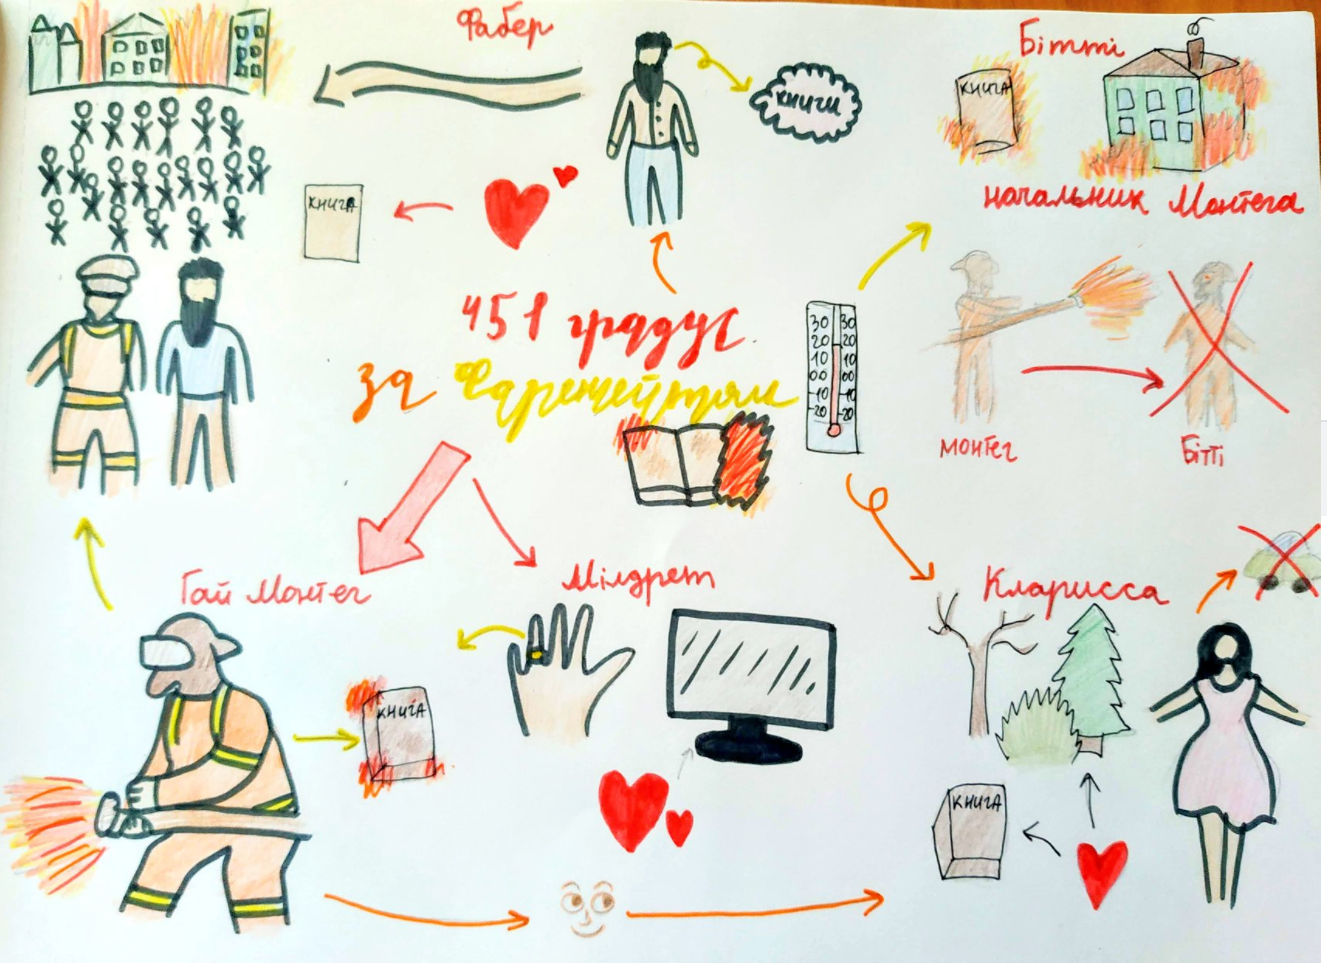 Фабер
Бітті
книги
КНИГА
начальник Монтега
КНИГА
451 градус
за Фаренгейтом
30 30
20 20
10 10
00 00
10 10
20 20
монтег
Бітті
Гай Монтег
Мілдрет
Кларисса
КНИГА
КНИГА